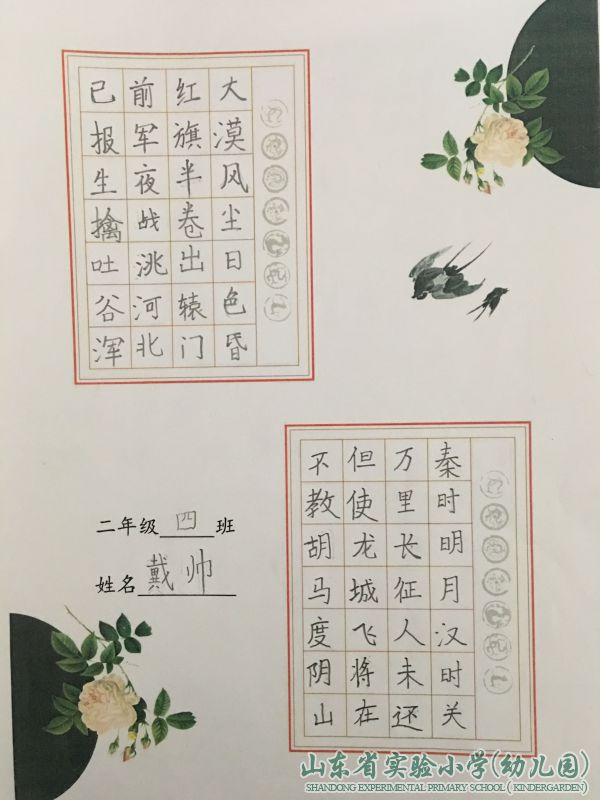 大漠风尘日色昏
红旗半卷出辕门
前军夜战洮河北
已报生擒吐谷浑
秦时明月汉时关
万里长征人未还
但使龙城飞将在
不教胡马度阴山
二年级四班
姓名戴帅
山东省实验小学(幼儿园)
SHANDONG EXPERIMENTAL PRIMARY SCHOOL ( KINDERGARDEN)